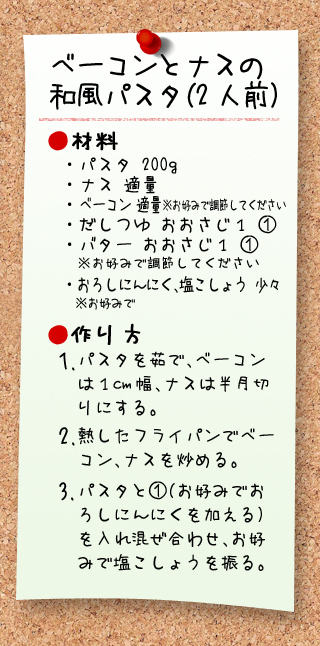 ベーコンとナスの
和風パスタ(2人前)
●材料
・パスタ 200g
・ナス 適量
・ベーコン 適量※お好みで調節してください
・だしつゆ おおさじ1 ①
・バター おおさじ1 ①
※お好みで調節してください
・おろしにんにく、塩こしょう 少々
※お好みで
●作り方
1.パスタを茹で、ベーコン
は1cm幅、ナスは半月切
りにする。
2.熱したフライパンでベー
コン、ナスを炒める。
3.パスタと①(お好みでお
ろしにんにくを加える)
を入れ混ぜ合わせ、お好
みで塩こしょうを振る。